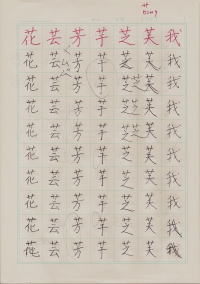 花 芸 芳 芋 芝 芙 我
花 芸 芳 芋 芝 芙 我
花 芸 芳 芋 芝 芝 芙 我
花 芸 芳 芋 芝 芝 芙 我
花 芸 芳 芋 芝 芝 芙 我
花 芸 芳 芋 芝 芙 我
花 芸 芳 芋 芝 芙 我
花 芸 芳 芋 芝 芙 我
花 芸 芳 芋 芝 芙 我
花 芸 芳 芋 芝 芙 我